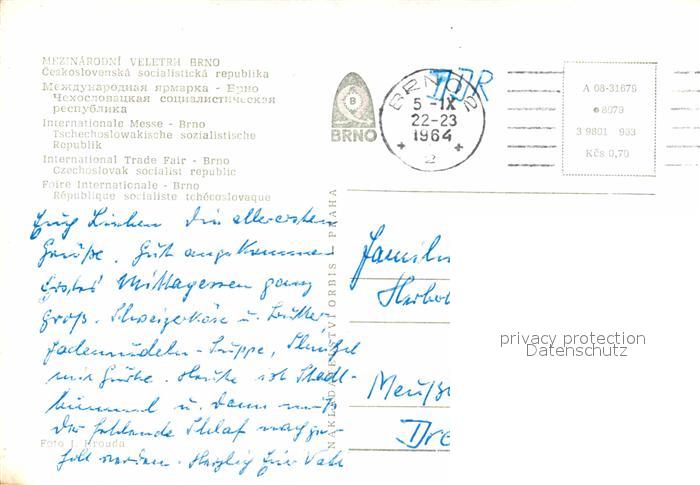 MEZINÁRODNÍ VELETRH BRNO
Československá socialistická republika
Международная ярмарка - Брно
Чехословацкая социалистическая
республика
Internationale Messe - Brno
Tschechoslowakische sozialistische
Republik
International Trade Fair - Brno
Czechoslovak socialist republic
Foire Internationale - Brno
République socialiste tchécoslovaque
BRNO
DDR
BRNO 2
5-IX
22-23
1964
2
A 08-31679
8079
3 9801 953
Kčs 0,70
Euch Lieben die allerersten
Grüße. Gut angekommen
Erstes Mittagessen ganz
groß. Schweizerkäse u. Butter
Fadennudeln-Suppe, Schnitzel
mit Gurke. Heute ist Stadt-
bummel u. dann muß
der fehlende Schlaf nachge-
holt werden. Herzlich Euer Vati
Foto J. Brouda
NAKLADATELSTVÍ ORBIS - PRAHA
Famili
Herbe
Meuß
Dre
privacy protection
Datenschutz